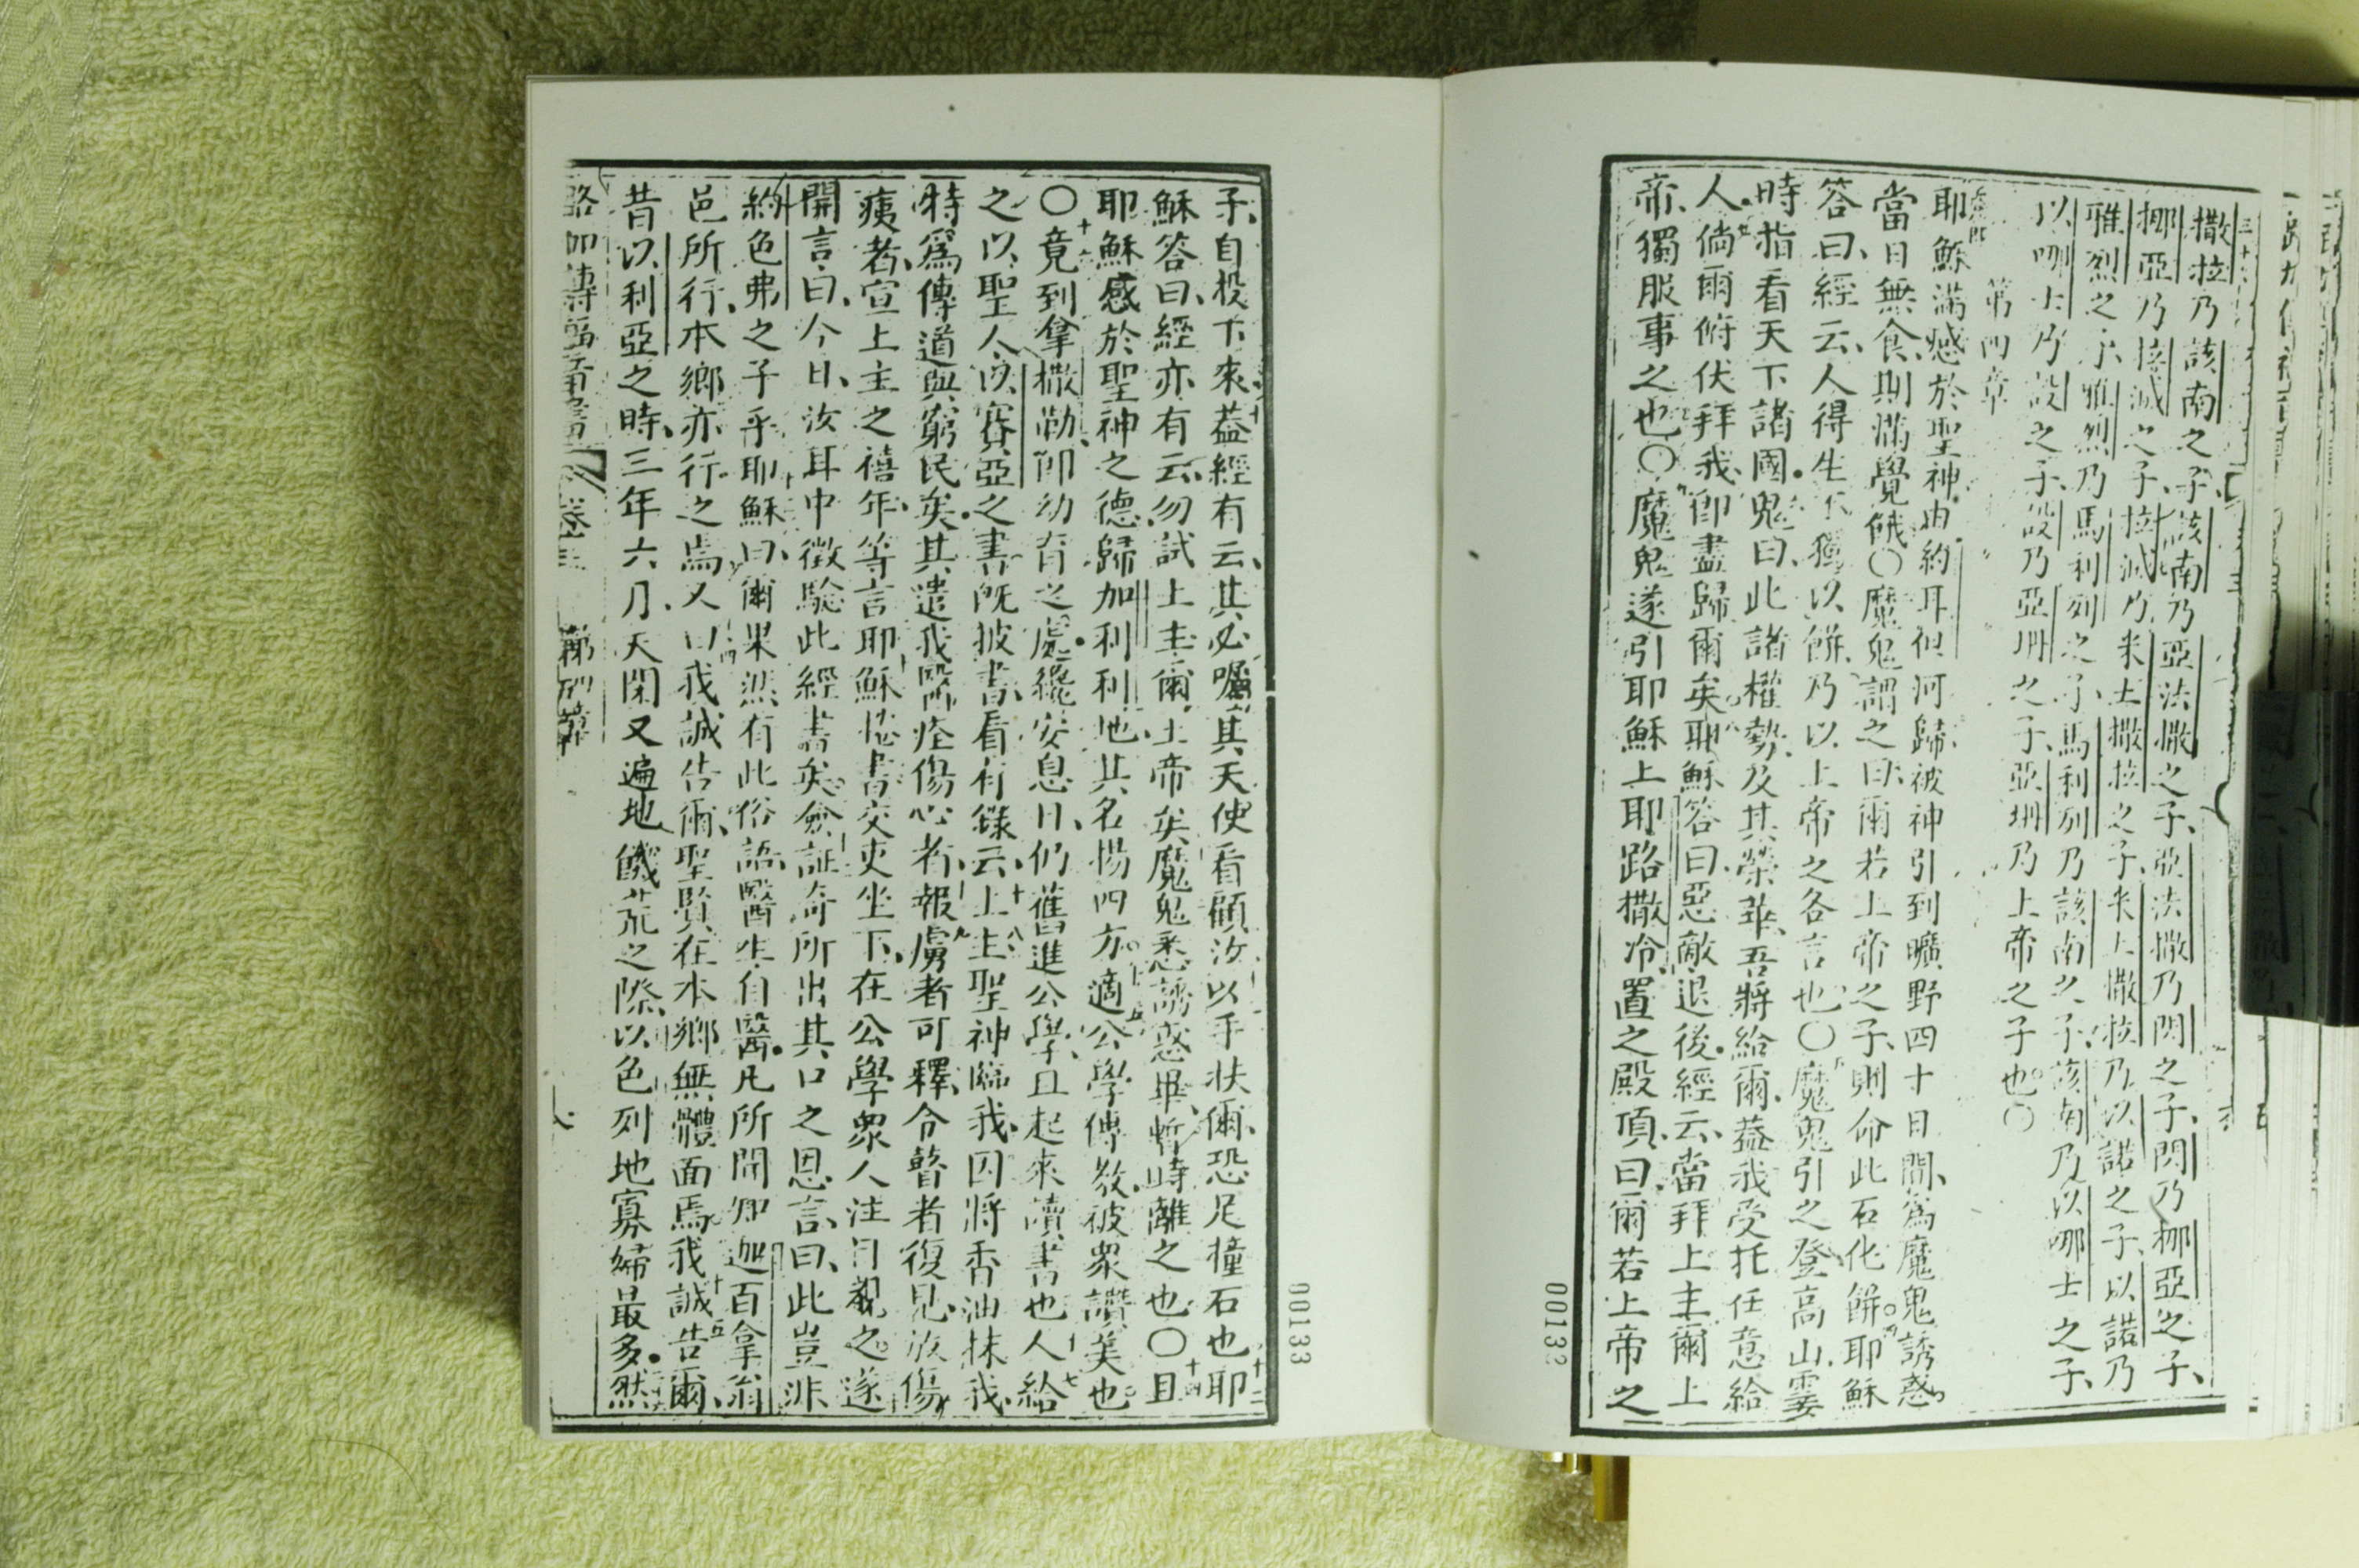 撒拉乃該南之子、該南乃亞法撒之子、亞法撒乃閃之子、閃乃挪亞之子、
挪亞乃拉滅之子、拉滅乃米土撒拉之子、米土撒拉乃以諾之子、以諾乃
雅烈之子、雅烈乃馬利列之子、馬利列乃該南之子、該南乃以哪士之子、
以哪士乃設之子、設乃亞珊之子、亞珊乃上帝之子也〇
第四章
耶穌滿感於聖神、由約耳但河歸、被神引到曠野四十日間、為魔鬼誘惑
當日無食、期滿覺餓〇魔鬼謂之曰、爾若上帝之子、則命此石化餅、耶穌
答曰、經云、人得生不獨以餅、乃以上帝之各言也〇魔鬼引之登高山、霎
時指看天下諸國、鬼曰、此諸權勢、及其榮華、吾將給爾、蓋我受托任意給
人、倘爾俯伏拜我、即盡歸爾矣、耶穌答曰、惡敵退後、經云、當拜上主爾上
帝、獨服事之也〇魔鬼遂引耶穌上耶路撒冷、置之殿頂、曰、爾若上帝之
00132
00133
子、自投下來、蓋經有云、其必囑其天使看顧汝、以手扶爾、恐足撞石也、耶
穌答曰、經亦有云、勿試上主爾上帝矣、魔鬼悉誘惑畢、暫時離之也〇且
耶穌感於聖神之德、歸加利利地、其名揚四方、適公學傳教、被眾讚美也
〇竟到拿撒勒、即幼育之處、纔安息日、仍舊進公學、且起來讀書也、人給
之以聖人以賽亞之書、既披書、看有錄云、上主聖神臨我、因將香油抹我、
特為傳道與窮民矣、其遣我醫痊傷心者、報虜者可釋、令瞽者復見、放傷
痍者、宣上主之禧年、等言、耶穌捲書交吏坐下、在公學眾人注目觀之、遂
開言曰、今日、汝耳中徵驗此經書矣、僉証奇所出其口之恩言、曰、此豈非
約色弗之子乎、耶穌曰、爾果然有此俗語、醫生自醫、凡所聞卿迦百拿翁
邑所行、本鄉亦行之焉、又曰、我誠告爾、聖賢在本鄉無體面焉、我誠告爾、
昔以利亞之時、三年六月、天閉又遍地饑荒之際、以色列地寡婦最多、然
路加傳福音書 卷三 第四章